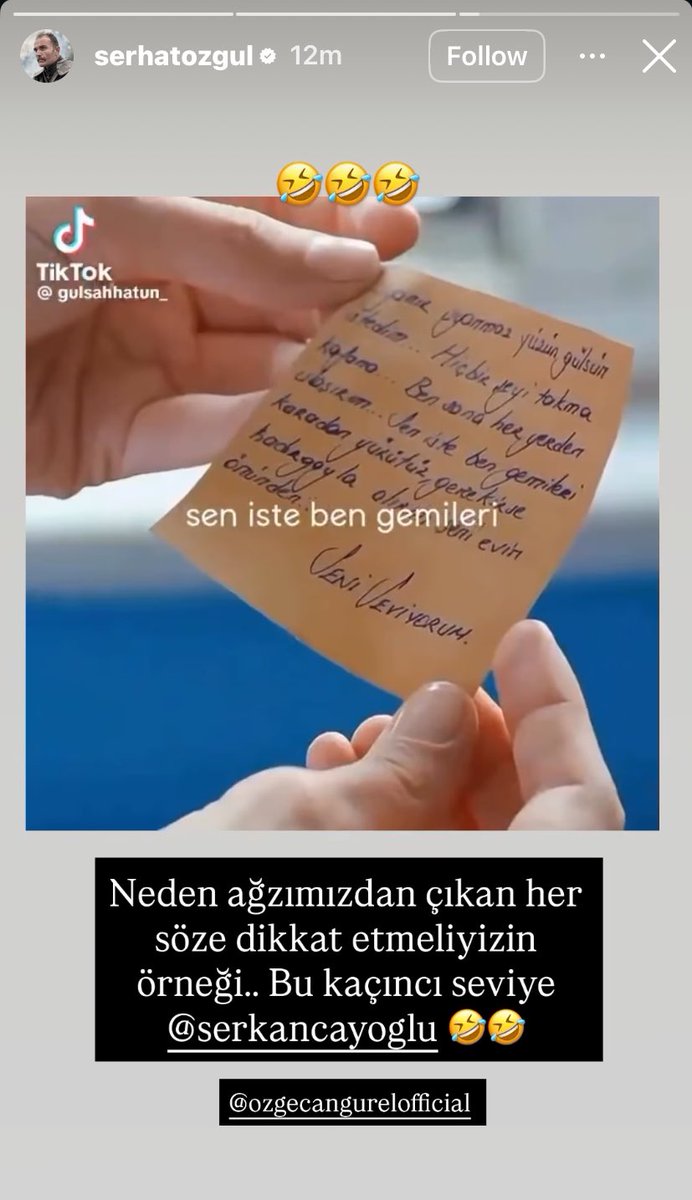 serhatozgul 12m Follow
🤣🤣🤣
TikTok
@ gulsahhatun_
yanmaz yüzün gülsün
istedim... Hiçbir şeyi takma
kafana... Ben sana her yerden
ulaşırım... Sen iste ben gemileri
karadan yürütür, gerekirse
sen iste ben gemileri
seni evin
önünden...
SENİ SEVİYORUM.
Neden ağzımızdan çıkan her
söze dikkat etmeliyizin
örneği.. Bu kaçıncı seviye
@serkancayoglu 🤣🤣
@ozgecangurelofficial